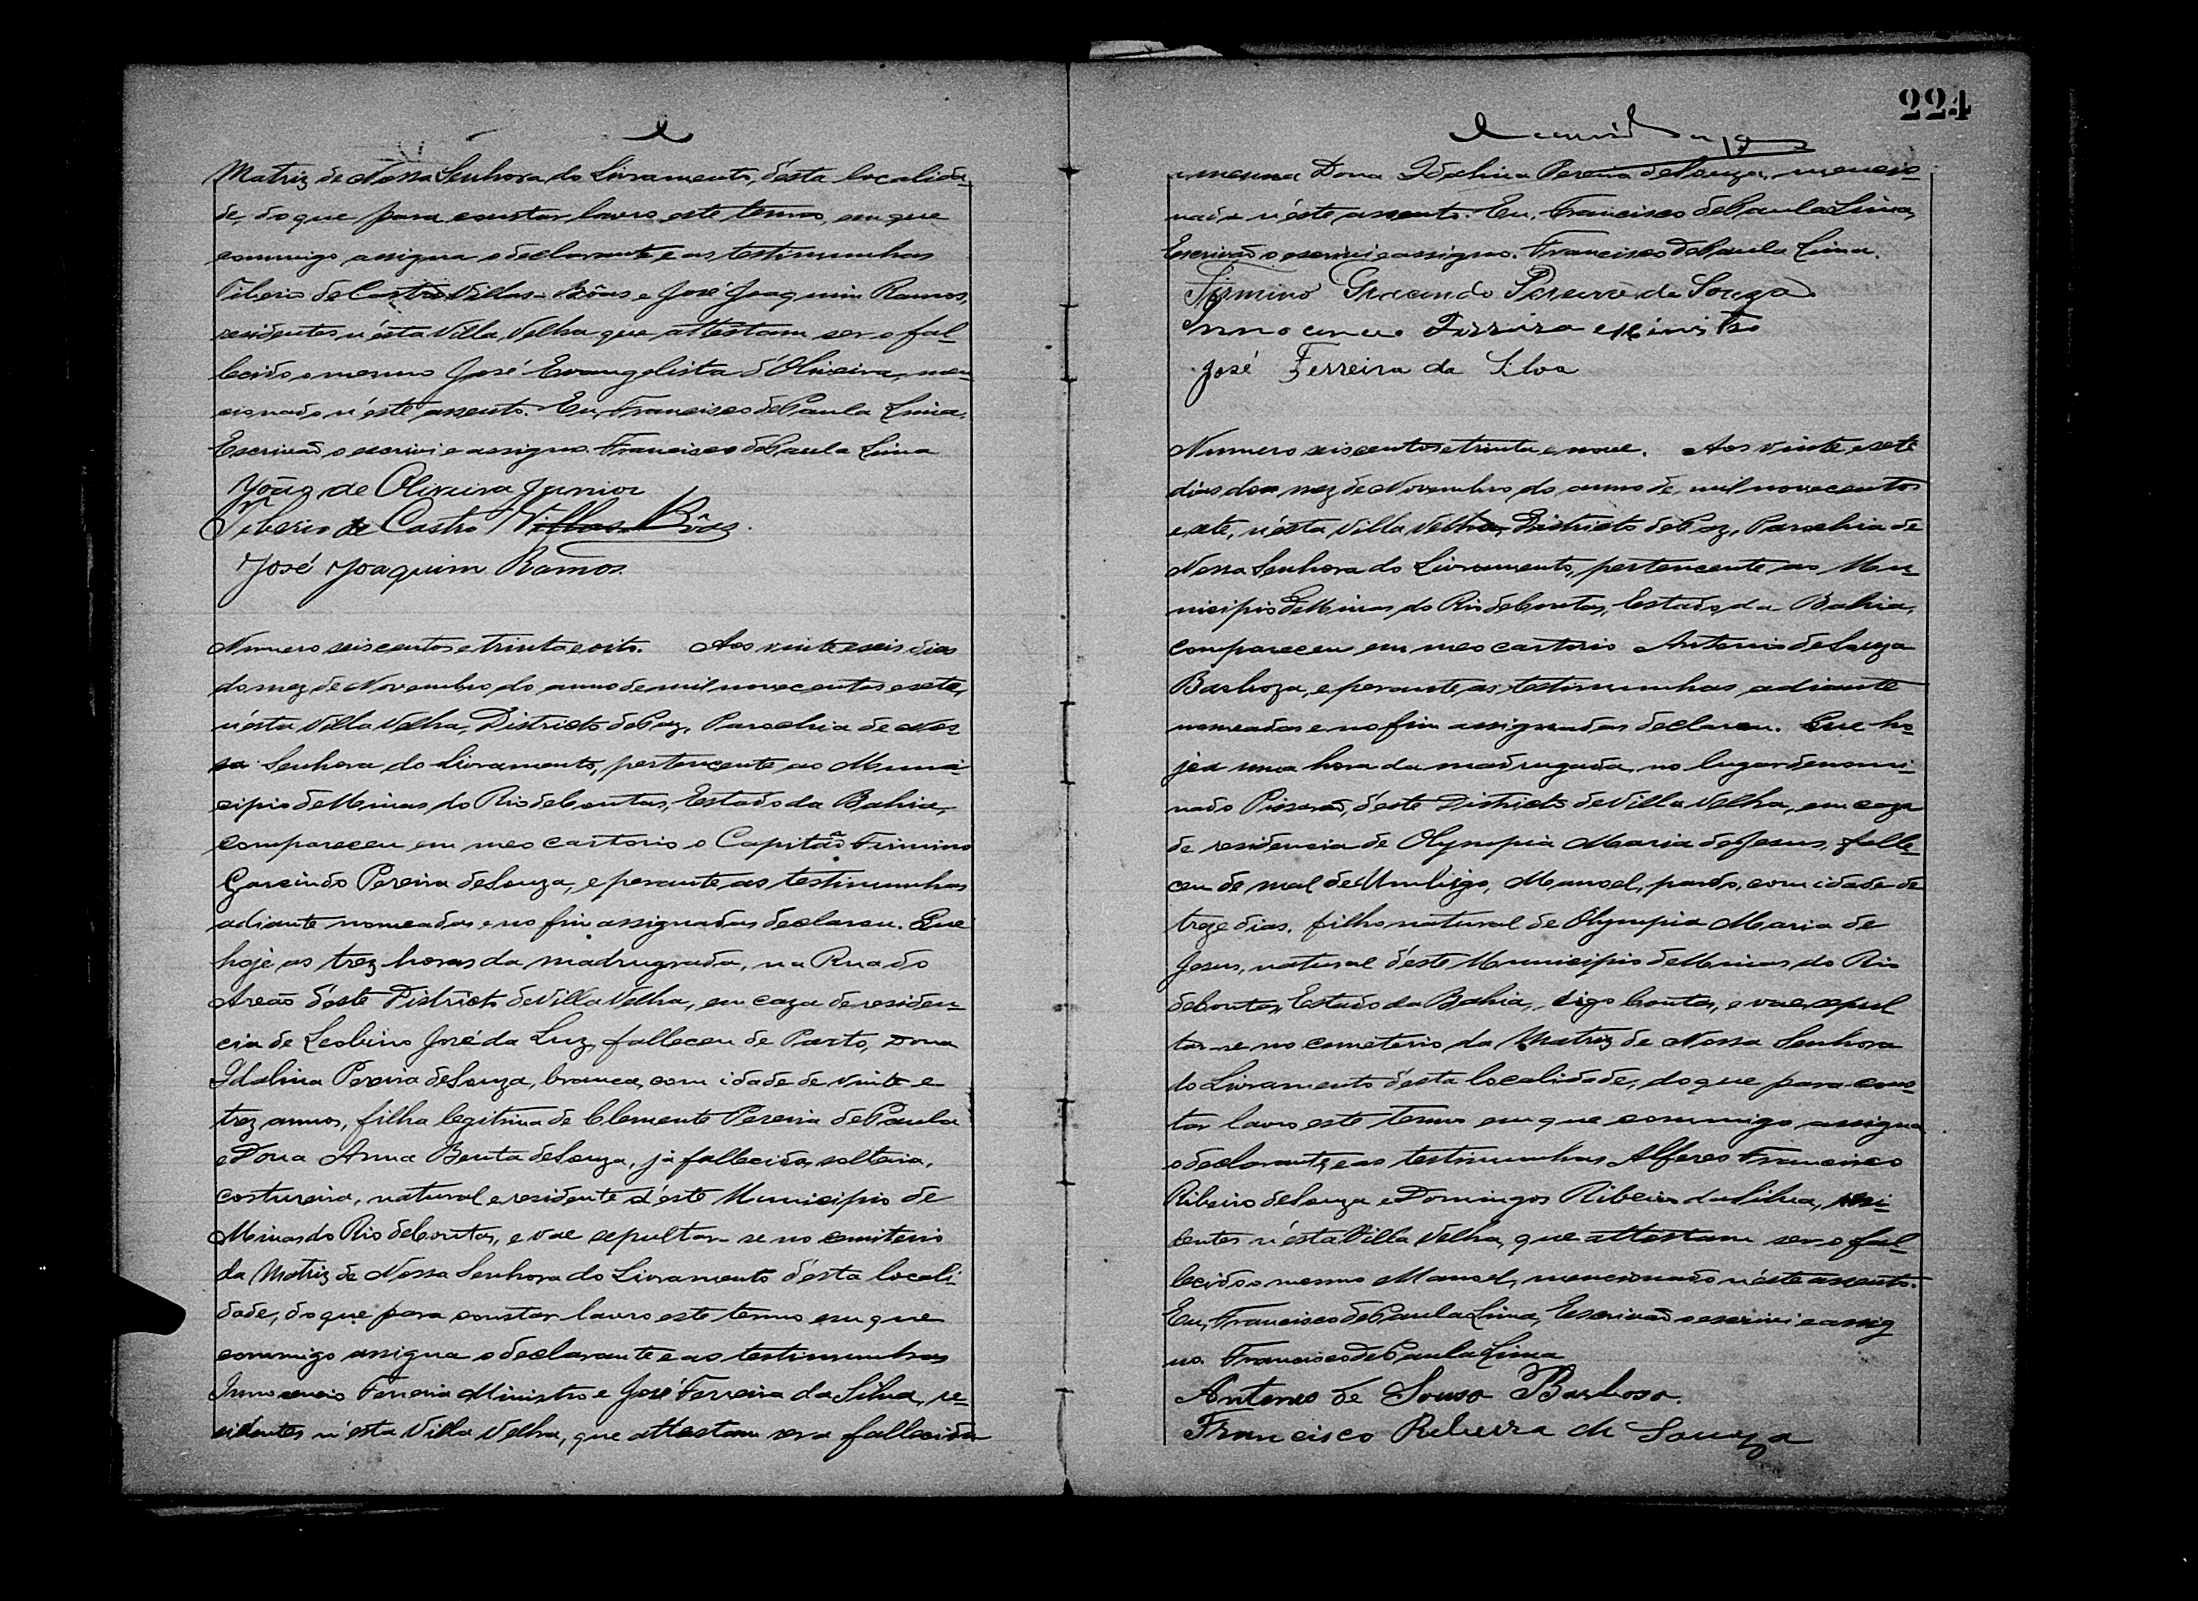 Matriz de Nossa Senhora do Livramento, d'esta localida-
de, do que para constar lavro este termo, em que
commigo assigna o declarante e as testimunhas
Tiberio de Castro Villas-Bôas e José Joaquim Ramos,
residentes n'esta Villa Velha que attestam ser o fal-
lecido o mesmo José Evangelista d'Oliveira, men-
cionado n'este assento. Eu, Francisco de Paula Lima,
Escrivaõ o escrivi e assigno. Francisco de Paula Lima
João de Oliveira Junior
Tiberio de Castro Villas Bôas.
José Joaquim Ramos.
Numero seis centos e trinta e oito. Aos vinte e seis dias
do mez de Novembro do anno de mil novecentos e sete,
n'esta Villa Velha, Districto de Paz, Parochia de Nos-
sa Senhora do Livramento, pertencente ao Muni-
cipio de Minas do Rio de Contas, Estado da Bahia,
compareceu em meo cartorio o Capitaõ Firmino
Garcindo Pereira de Souza, e perante as testimunhas
adiante nomeadas e no fim assignadas declarou. Que
hoje as trez horas da madrugada, na Rua do
Areão d'este Districto de Villa Velha, em caza de residen-
cia de Leobino José da Luz, falleceu de Parto, Dona
Idalina Pereira de Souza, branca, com idade de vinte e
trez annos, filha legitima de Clemente Pereira de Paula
e Dona Anna Benta de Souza, já fallecida, solteira,
costureira, natural e residente d'este Municipio de
Minas do Rio de Contas, e vae sepultar-se no cemiterio
da Matriz de Nossa Senhora do Livramento d'esta locali-
dade, do que para constar lavro este termo em que
commigo assigna o declarante e as testimunhas
Innocencio Ferreira Ministro e José Ferreira da Silva, re-
sidentes n'esta Villa Velha, que attestam ser a fallecida
224
a mesma Dona Idalina Pereira de Souza, mencio-
nada n'éste assento. Eu, Francisco de Paula Lima,
Escrivaõ o escrivi e assigno. Francisco de Paula Lima.
Firmino Gracindo Pereira de Souza
Innocencio Ferreira Ministro
José Ferreira da Silva
Numero seis centos e trinta e nove. Aos vinte e sete
dias do mez de Novembro do anno de mil novecentos
e sete, n'ésta Villa Velha, Districto de Paz, Parochia de
Nossa Senhora do Livramento, pertencente ao Mu-
nicipio de Minas do Rio de Contas, Estado da Bahia,
compareceu em meo cartorio Antonio de Souza
Barboza, e perante as testimunhas adiante
nomeadas e no fim assignadas declarou. Que ho-
je a uma hora da madrugada, no lugar denomi-
nado Pissaraõ, d'éste Districto de Villa Velha, em caza
de residencia de Olympia Maria de Jesus, falle-
ceu de mal de Umbigo, Manoel, pardo, com idade de
treze dias, filho natural de Olympia Maria de
Jesus, natural d'éste Municipio de Minas do Rio
de Contas, Estado da Bahia, digo Contas, e vae sepul
tar-se no cemeterio da Matriz de Nossa Senhora
do Livramento d'ésta localidade, do que para cons-
tar lavro este termo em que commigo assigna
o declarante, e as testimunhas Alferes Francisco
Ribeiro de Souza e Domingos Ribeiro da Silva, resi-
dentes n'ésta Villa Velha, que attestam ser o fal-
lecido o mesmo Manoel, mencionado n'éste assento.
Eu, Francisco de Paula Lima, Escrivaõ o escrivi e assig
no. Francisco de Paula Lima
Antonio de Souza Barbosa.
Francisco Ribeiro de Souza